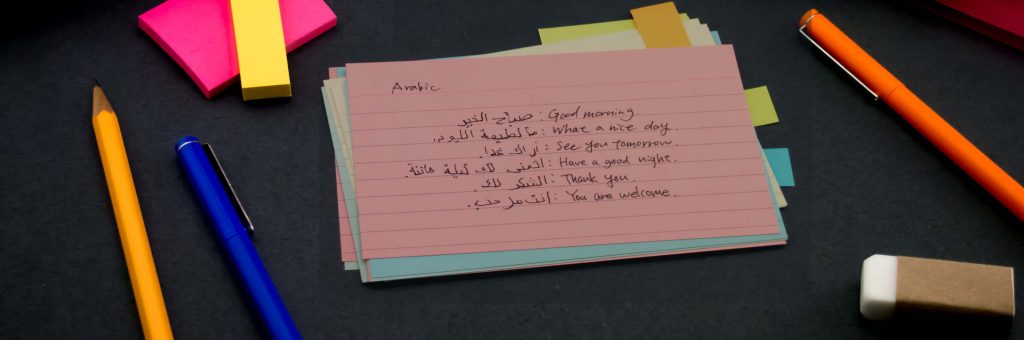 Arabic
صباح الخير : Good morning
مالطيفة اليوم. : What a nice day.
أراك غدا. : See you tomorrow.
اتمنى لك ليلة هانئة. : Have a good night.
الشكر لك. : Thank you.
انت مرحب. : You are welcome.